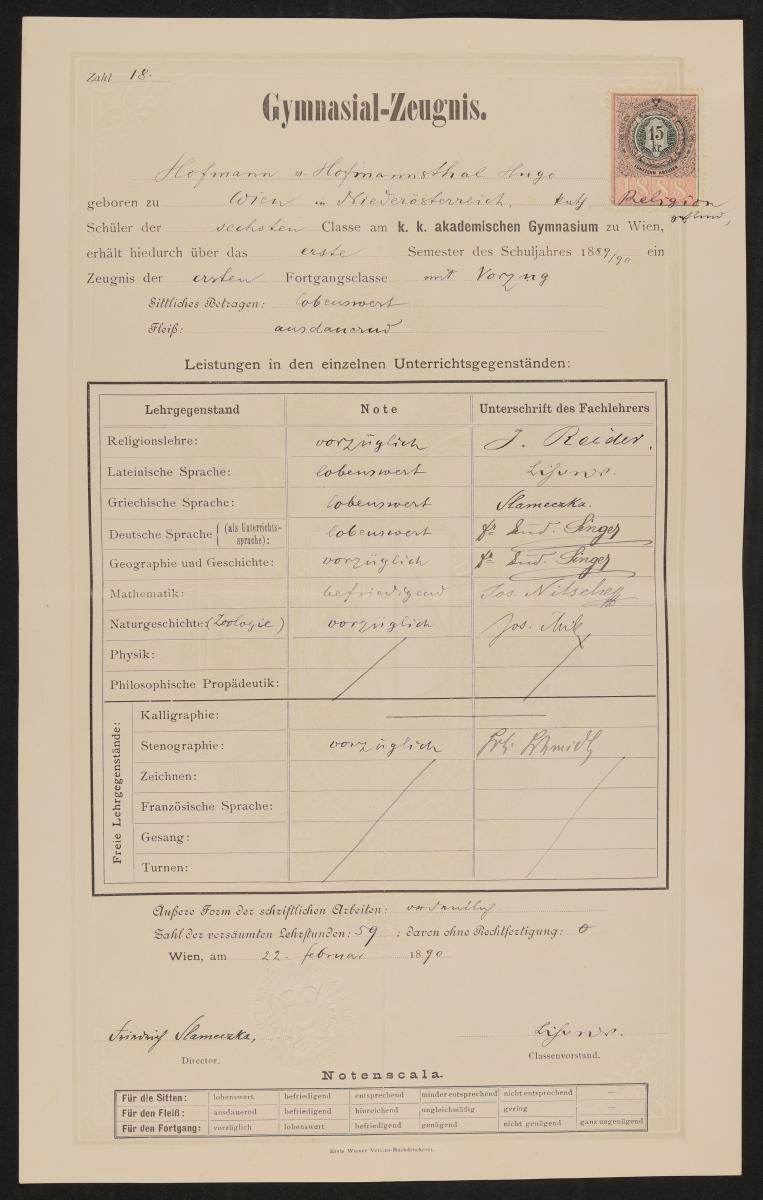 Zahl 18.
Gymnasial-Zeugnis.
15 kr.
1888
Hofmann v. Hofmannsthal Hugo
geboren zu Wien in Niederösterreich, kath. Religion
Schüler der sechsten Classe am k. k. akademischen Gymnasium zu Wien,
erhält hiedurch über das erste Semester des Schuljahres 1889/90 ein
Zeugnis der ersten Fortgangsclasse mit Vorzug
Sittliches Betragen: lobenswert
Fleiß: ausdauernd
Leistungen in den einzelnen Unterrichtsgegenständen:
Lehrgegenstand Note Unterschrift des Fachlehrers
Religionslehre: vorzüglich J. Reider.
Lateinische Sprache: lobenswert
Griechische Sprache: lobenswert Slameczka.
Deutsche Sprache (als Unterrichts-sprache): lobenswert Singer
Geographie und Geschichte: vorzüglich Singer
Mathematik: befriedigend Jos. Nitsche
Naturgeschichte: (Zoologie) vorzüglich Jos. Mik
Physik:
Philosophische Propädeutik:
Freie Lehrgegenstände:
Kalligraphie:
Stenographie: vorzüglich Schmidt
Zeichnen:
Französische Sprache:
Gesang:
Turnen:
Äußere Form der schriftlichen Arbeiten: ordentlich.
Zahl der versäumten Lehrstunden: 59 ; davon ohne Rechtfertigung: 0
Wien, am 22. februar 1890
Friedrich Slameczka,
Director. Classenvorstand.
Notenscala.
Für die Sitten: lobenswert befriedigend entsprechend minder entsprechend nicht entsprechend —
Für den Fleiß: ausdauernd befriedigend hinreichend ungleichmäßig gering —
Für den Fortgang: vorzüglich lobenswert befriedigend genügend nicht genügend ganz ungenügend
Erste Wiener Vereins-Buchdruckerei.